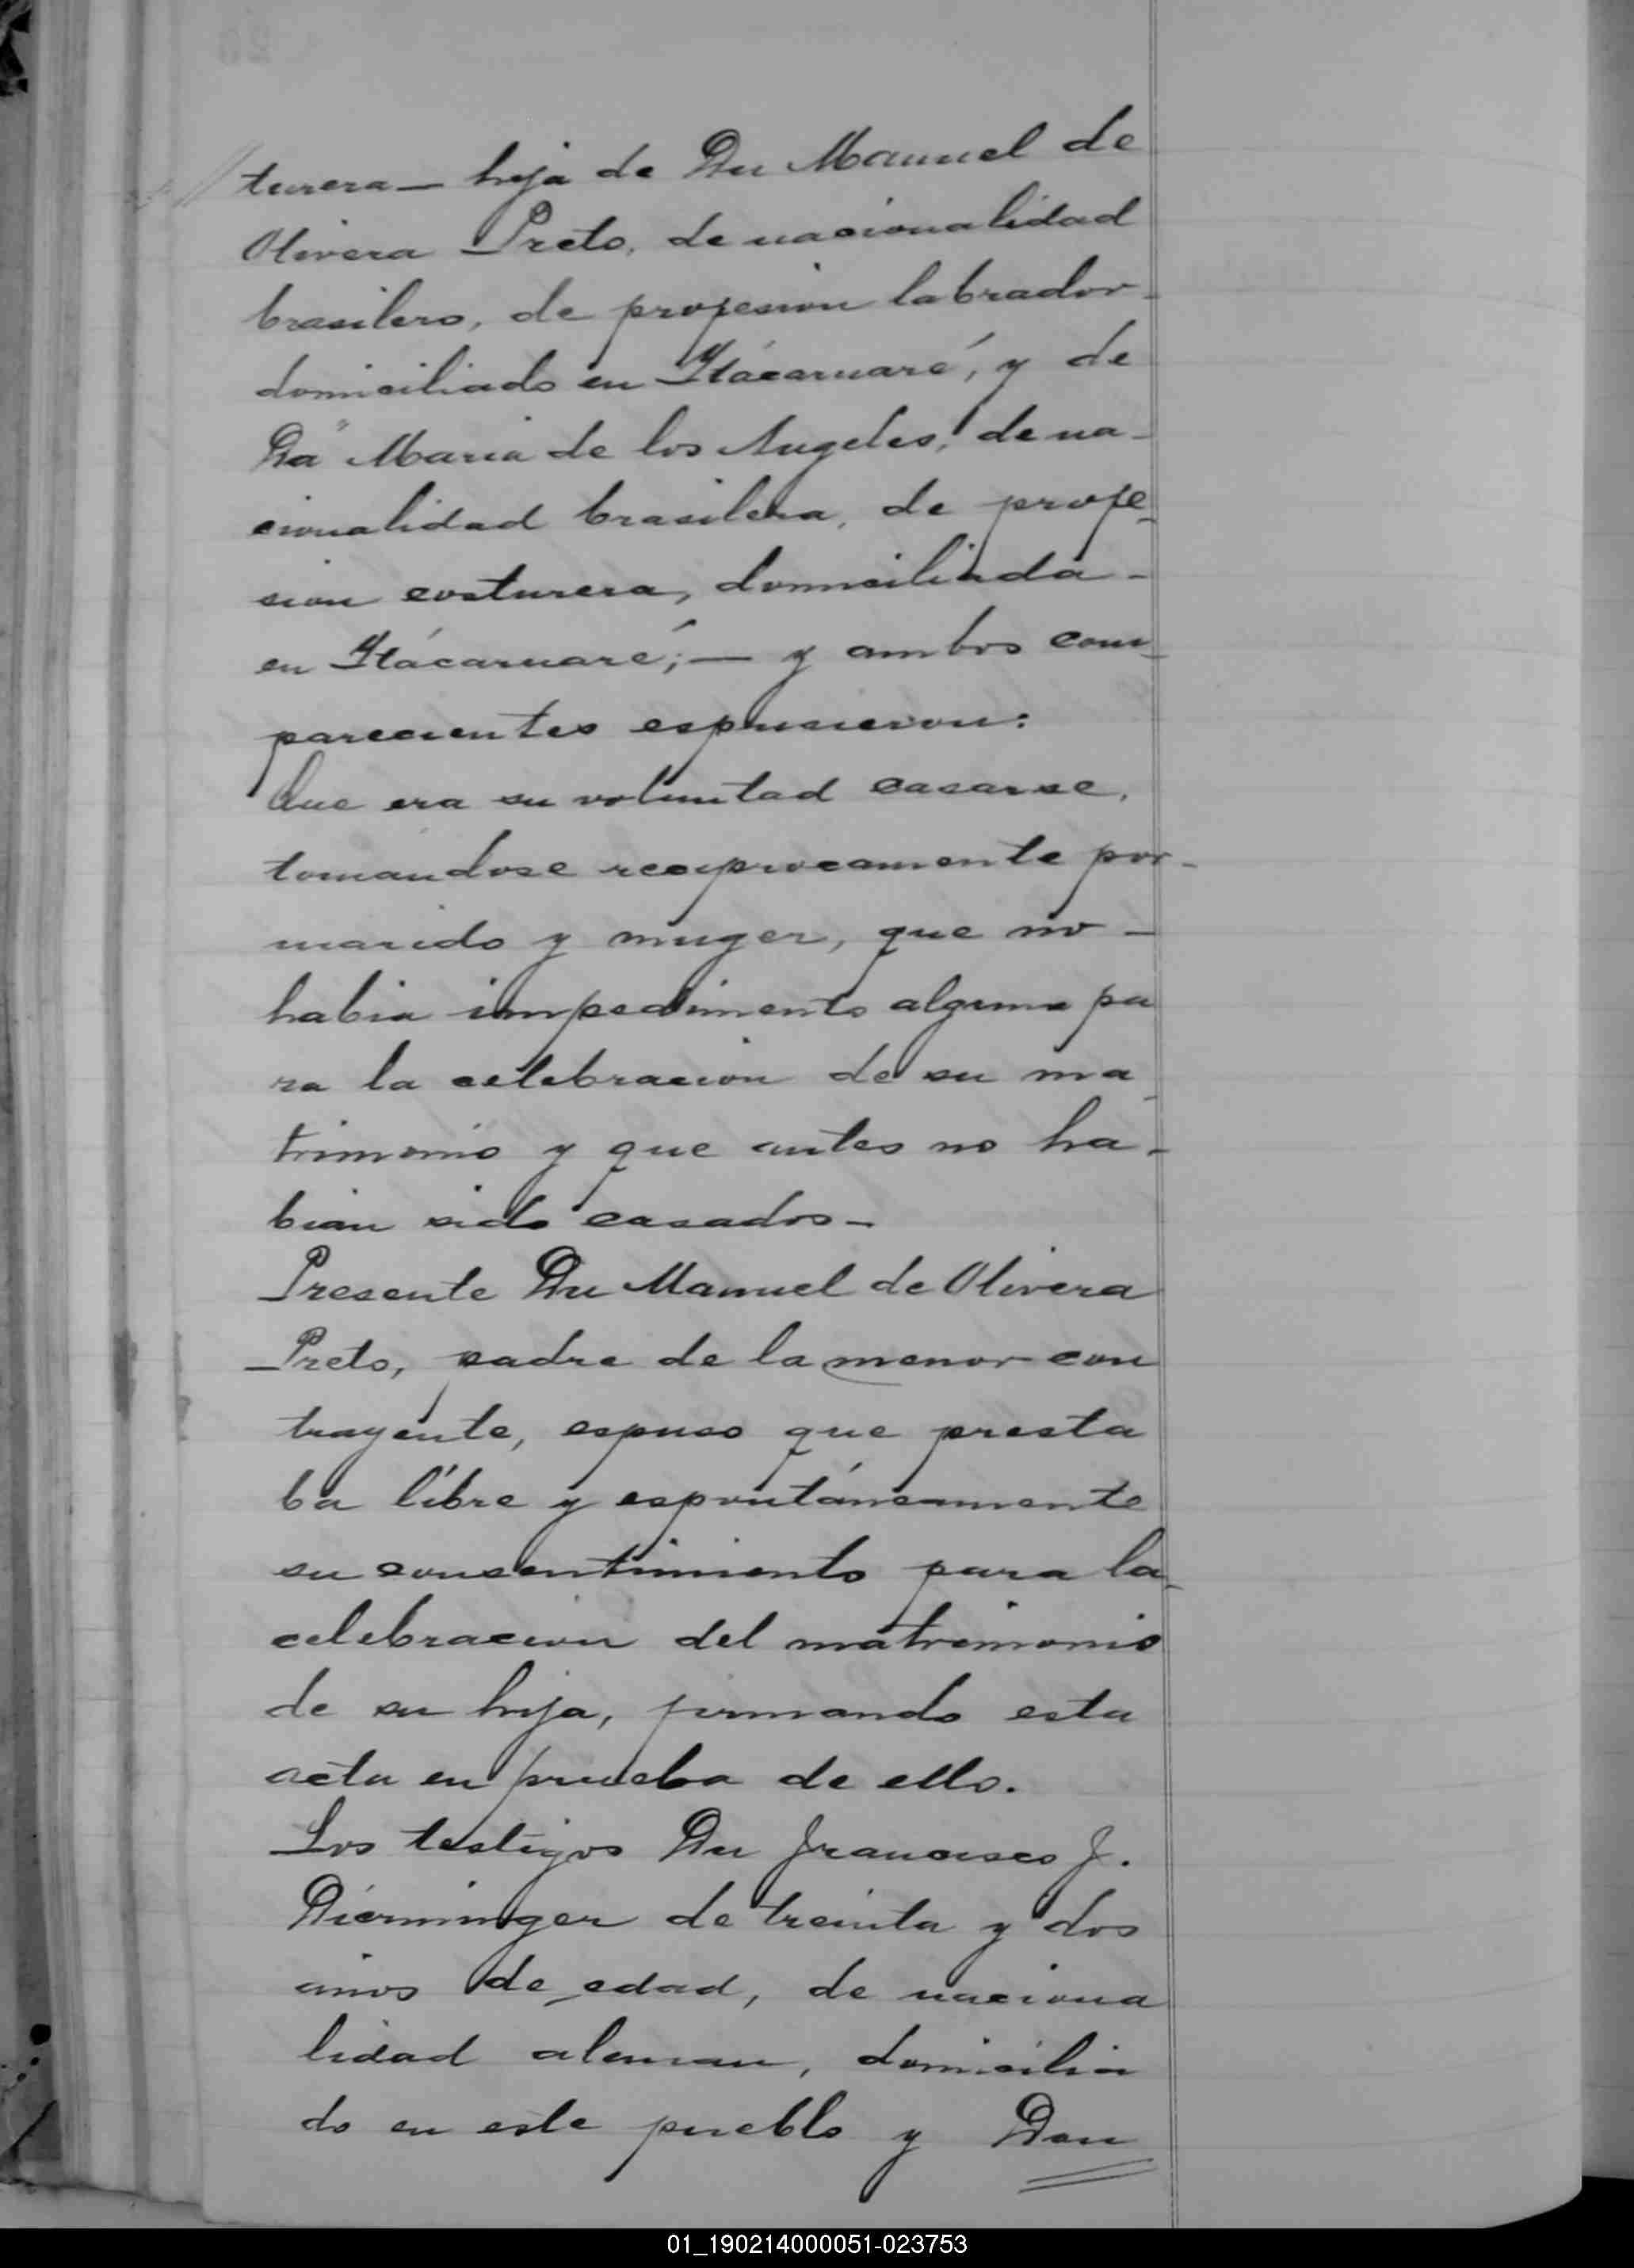 turera — hija de Dn Manuel de
Olivera Preto, de nacionalidad
brasilero, de profesion labrador -
domiciliado en Itácaruaré, y de
Da Maria de los Angeles, de na-
cionalidad brasilera, de profe-
sion costurera, domiciliada -
en Itácaruaré; — y ambos com-
parecientes espusieron:
Que era su voluntad casarse,
tomandose reciprocamente por -
marido y muger, que no -
habia impedimento alguno pa
ra la celebracion de su ma-
trimonio y que antes no ha-
bian sido casados -
Presente Dn Manuel de Olivera
Preto, padre de la menor con
trayente, espuso que presta
ba libre y espontáneamente
su consentimiento para la -
celebracion del matrimonio
de su hija, firmando esta
acta en prueba de ello.
Los testigos Dn Francisco J.
Dierminger de treinta y dos
años de edad, de naciona
lidad aleman, domicilia
do en este pueblo y Don
01_190214000051-023753